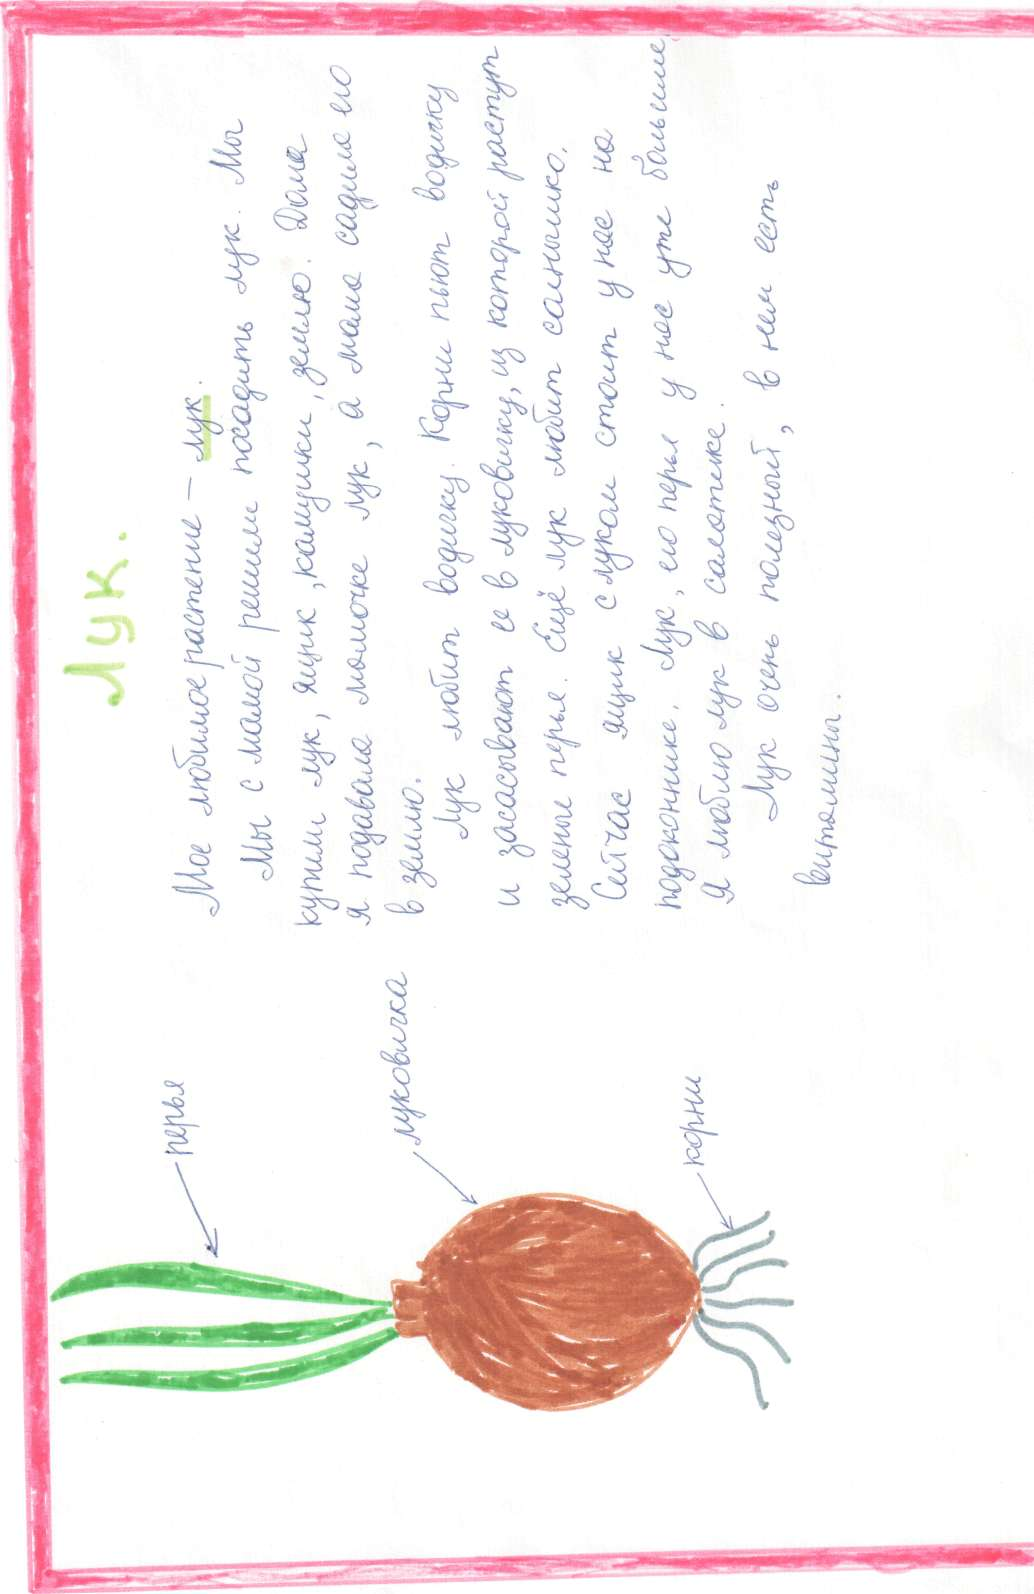 Лук.
Мое любимое растение – лук.
Мы с мамой решили посадить лук. Мы
купили лук, ящик, камушки, землю. Дома
я подавала мамочке лук, а мама садила его
в землю.
Лук любит водичку. Корни пьют водичку
и засасывают ее в луковичку, из которой растут
зеленые перья. Ещё лук любит солнышко.
Сейчас ящик с луком стоит у нас на
подоконнике. Лук, его перья у нас уже большие.
Я люблю лук в салатике.
Лук очень полезный, в нем есть
витамины.
перья
луковичка
корни